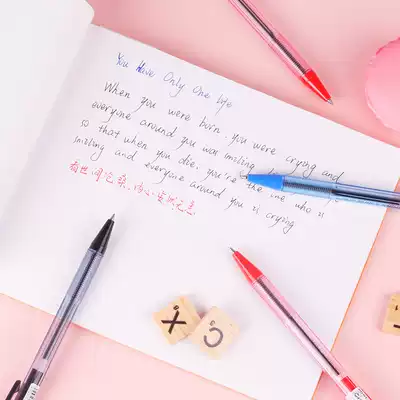 You Have Only One life
When you were born, you were crying and
everyone around you was smiling
so that when you die, you're the one who is
smiling and everyone around you is crying
看世间沧桑,内心安然无恙
X
C